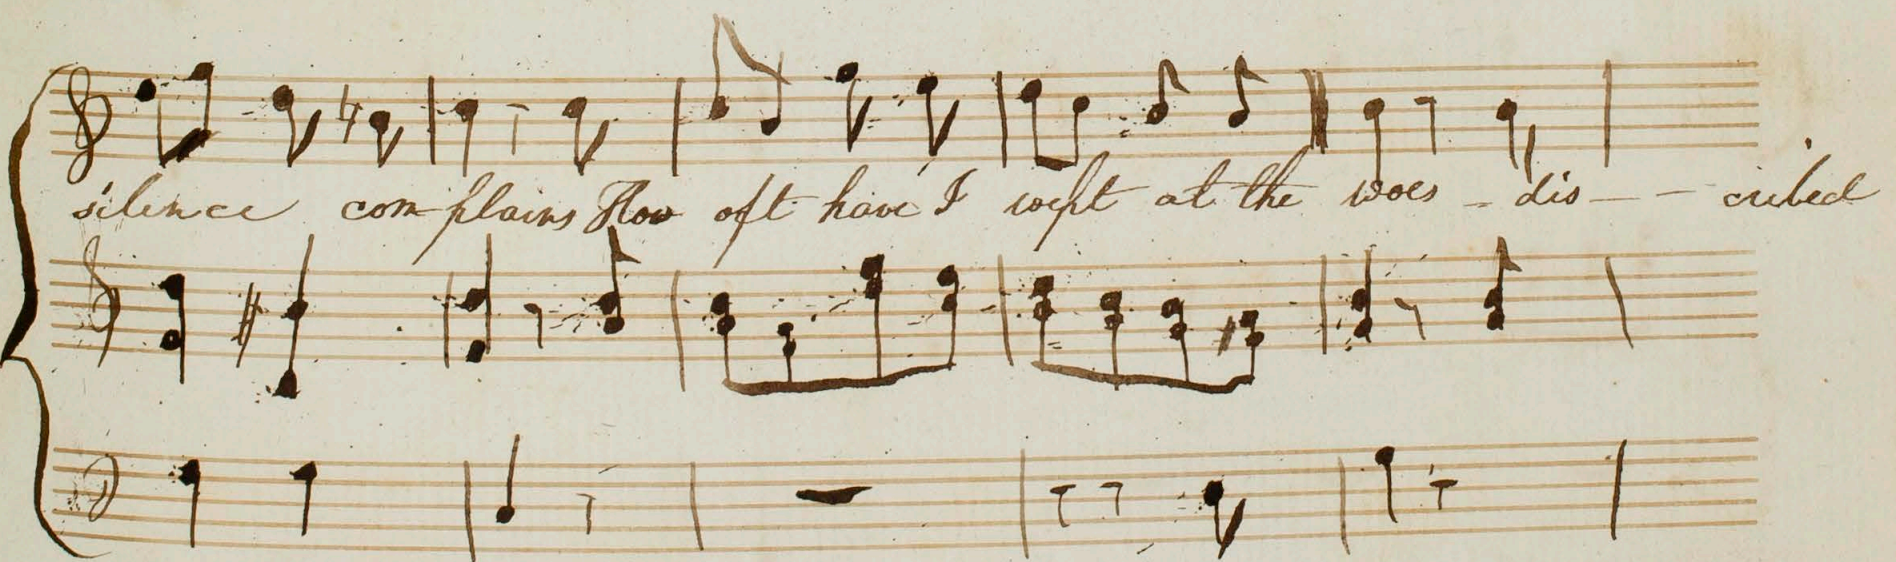 silence com-plains How oft have I wept at the woes - dis - - cribed